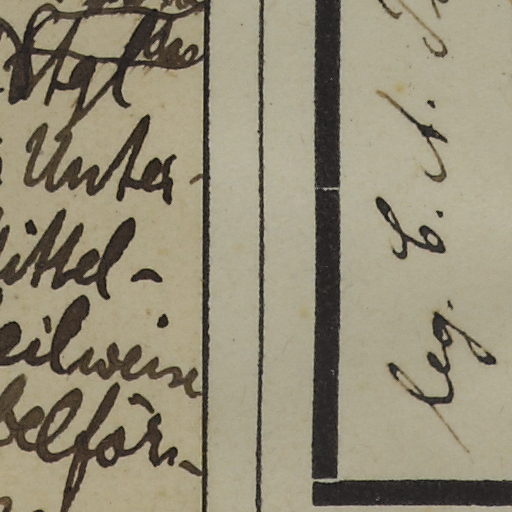 Stgl
Unter-
ittel-
eilweise
belför-
leg. C. A.